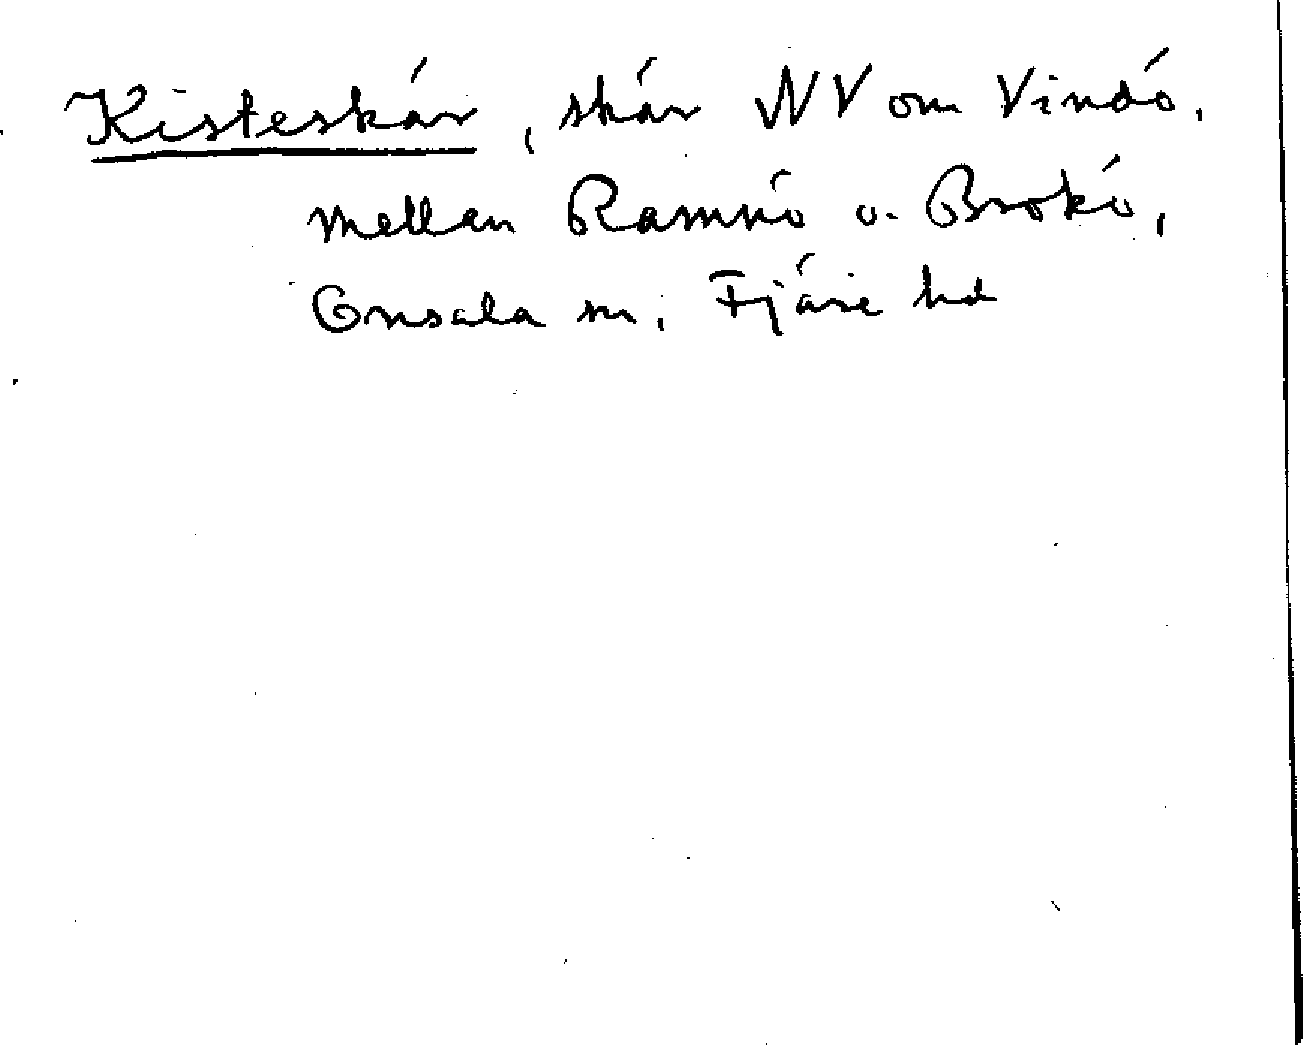 Kisteskär, skär NV om Vindö,
mellan Ramnö o. Brokö,
Onsala sn, Fjäre hd